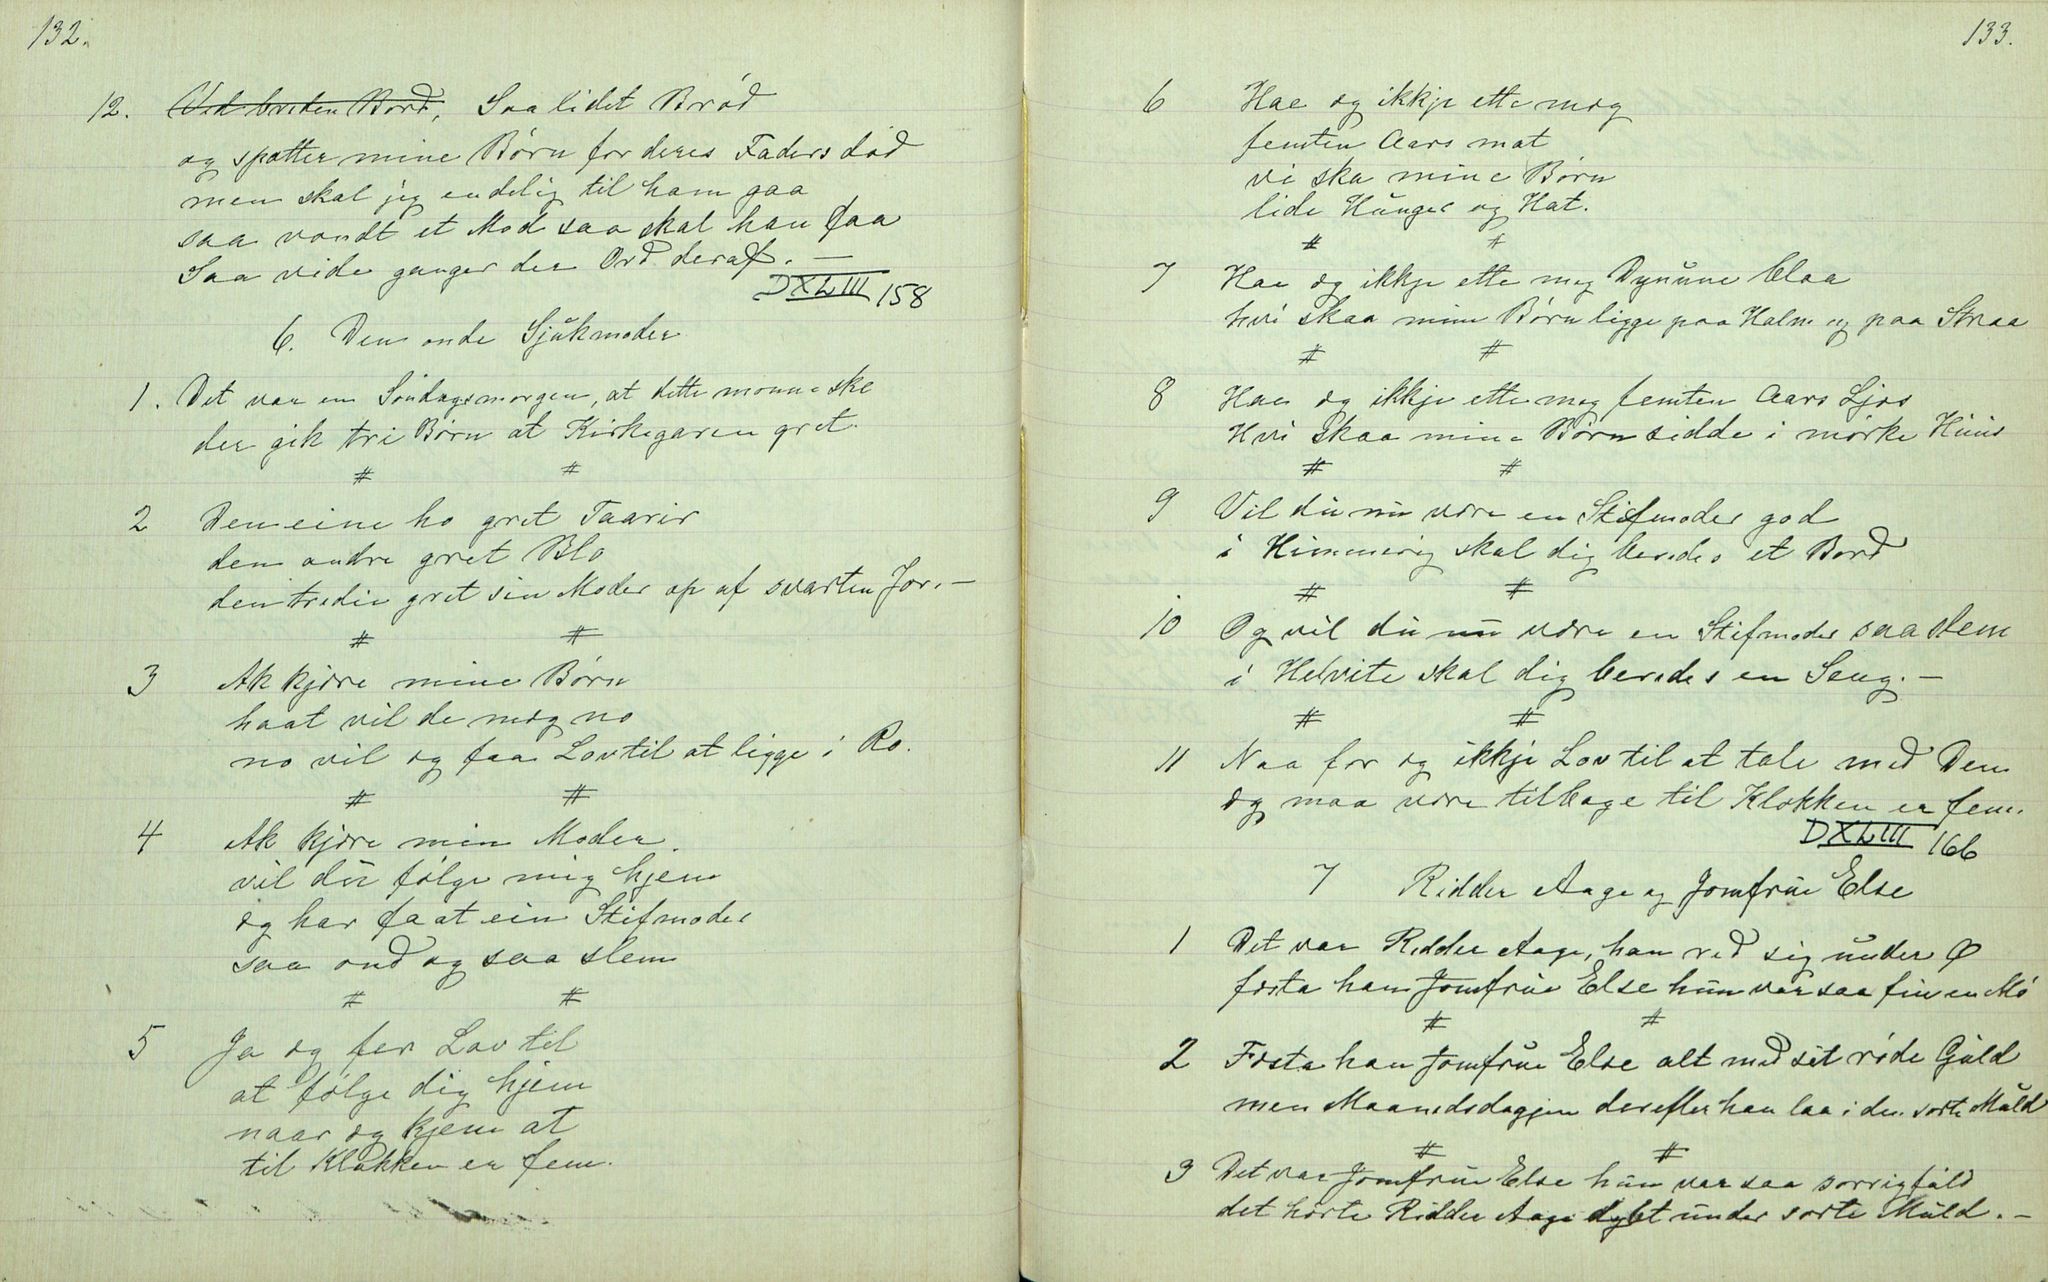 132.
12. Ved breden Bord, Saa lidet Brød
og spotter mine Børn for deres Faders død
men skal jeg endelig til ham gaa
saa vondt et Mod saa skal han faa
Saa vide ganger der Ord deraf. —
DXLIII 158
6. Den onde Sjukmoder
1. Det var en Søndagsmorgen, at dette monne ske
der gik tri Børn at Kirkegaren gret.
# #
2 Den eine ho gret Taarir
den andre gret Blo
den tredie gret sin Moder op af svarten Jor. —
# #
3 Ak kjære mine Børn
haat vil de meg no
no vil eg faa Lov til at ligge i Ro.
# #
4 Ak kjære min Moder.
vil du følge mig hjem
eg har faat ein Stifmoder
saa ond og saa slem
# #
5 Ja eg fer Lov til
at følge dig hjem
naar eg kjem at
til Klokken er fem.
133.
6 Hae eg ikkje ette meg
femten Aars mat
vi ska mine Børn
lide Hunger og Hat.
# #
7 Hae eg ikkje ette meg Dynune blaa
hvi skaa mine Børn ligge paa Halm og paa Straa
# #
8 Hae eg ikkje ette meg femten Aars Ljos
Hvi skaa mine Børn sidde i mørke Huus
# #
9 Vil du nu være en Stifmoder god
i Himmerig skal dig beredes et Bord
# #
10 Og vil du nu være en Stifmoder saa slem
i Helvite skal dig beredes en Seng. —
# #
11 Naa for eg ikkje Lov til at tale med Dem
eg maa være tilbage til Klokken er fem.
DXLIII 166
7 Ridder Aage og Jomfrue Else
1 Det var Ridder Aage, han red sig under Ø
fæsta han Jomfrue Else hun var saa fin en Mø
# #
2 Fæsta han Jomfrue Else alt med sit røde Guld
men Maanedsdagjen derefter han laa i den sorte Muld
# #
3 Det var Jomfrue Else hun var saa sorrigfuld
det hørte Ridder Aage dybt under sorte Muld. —